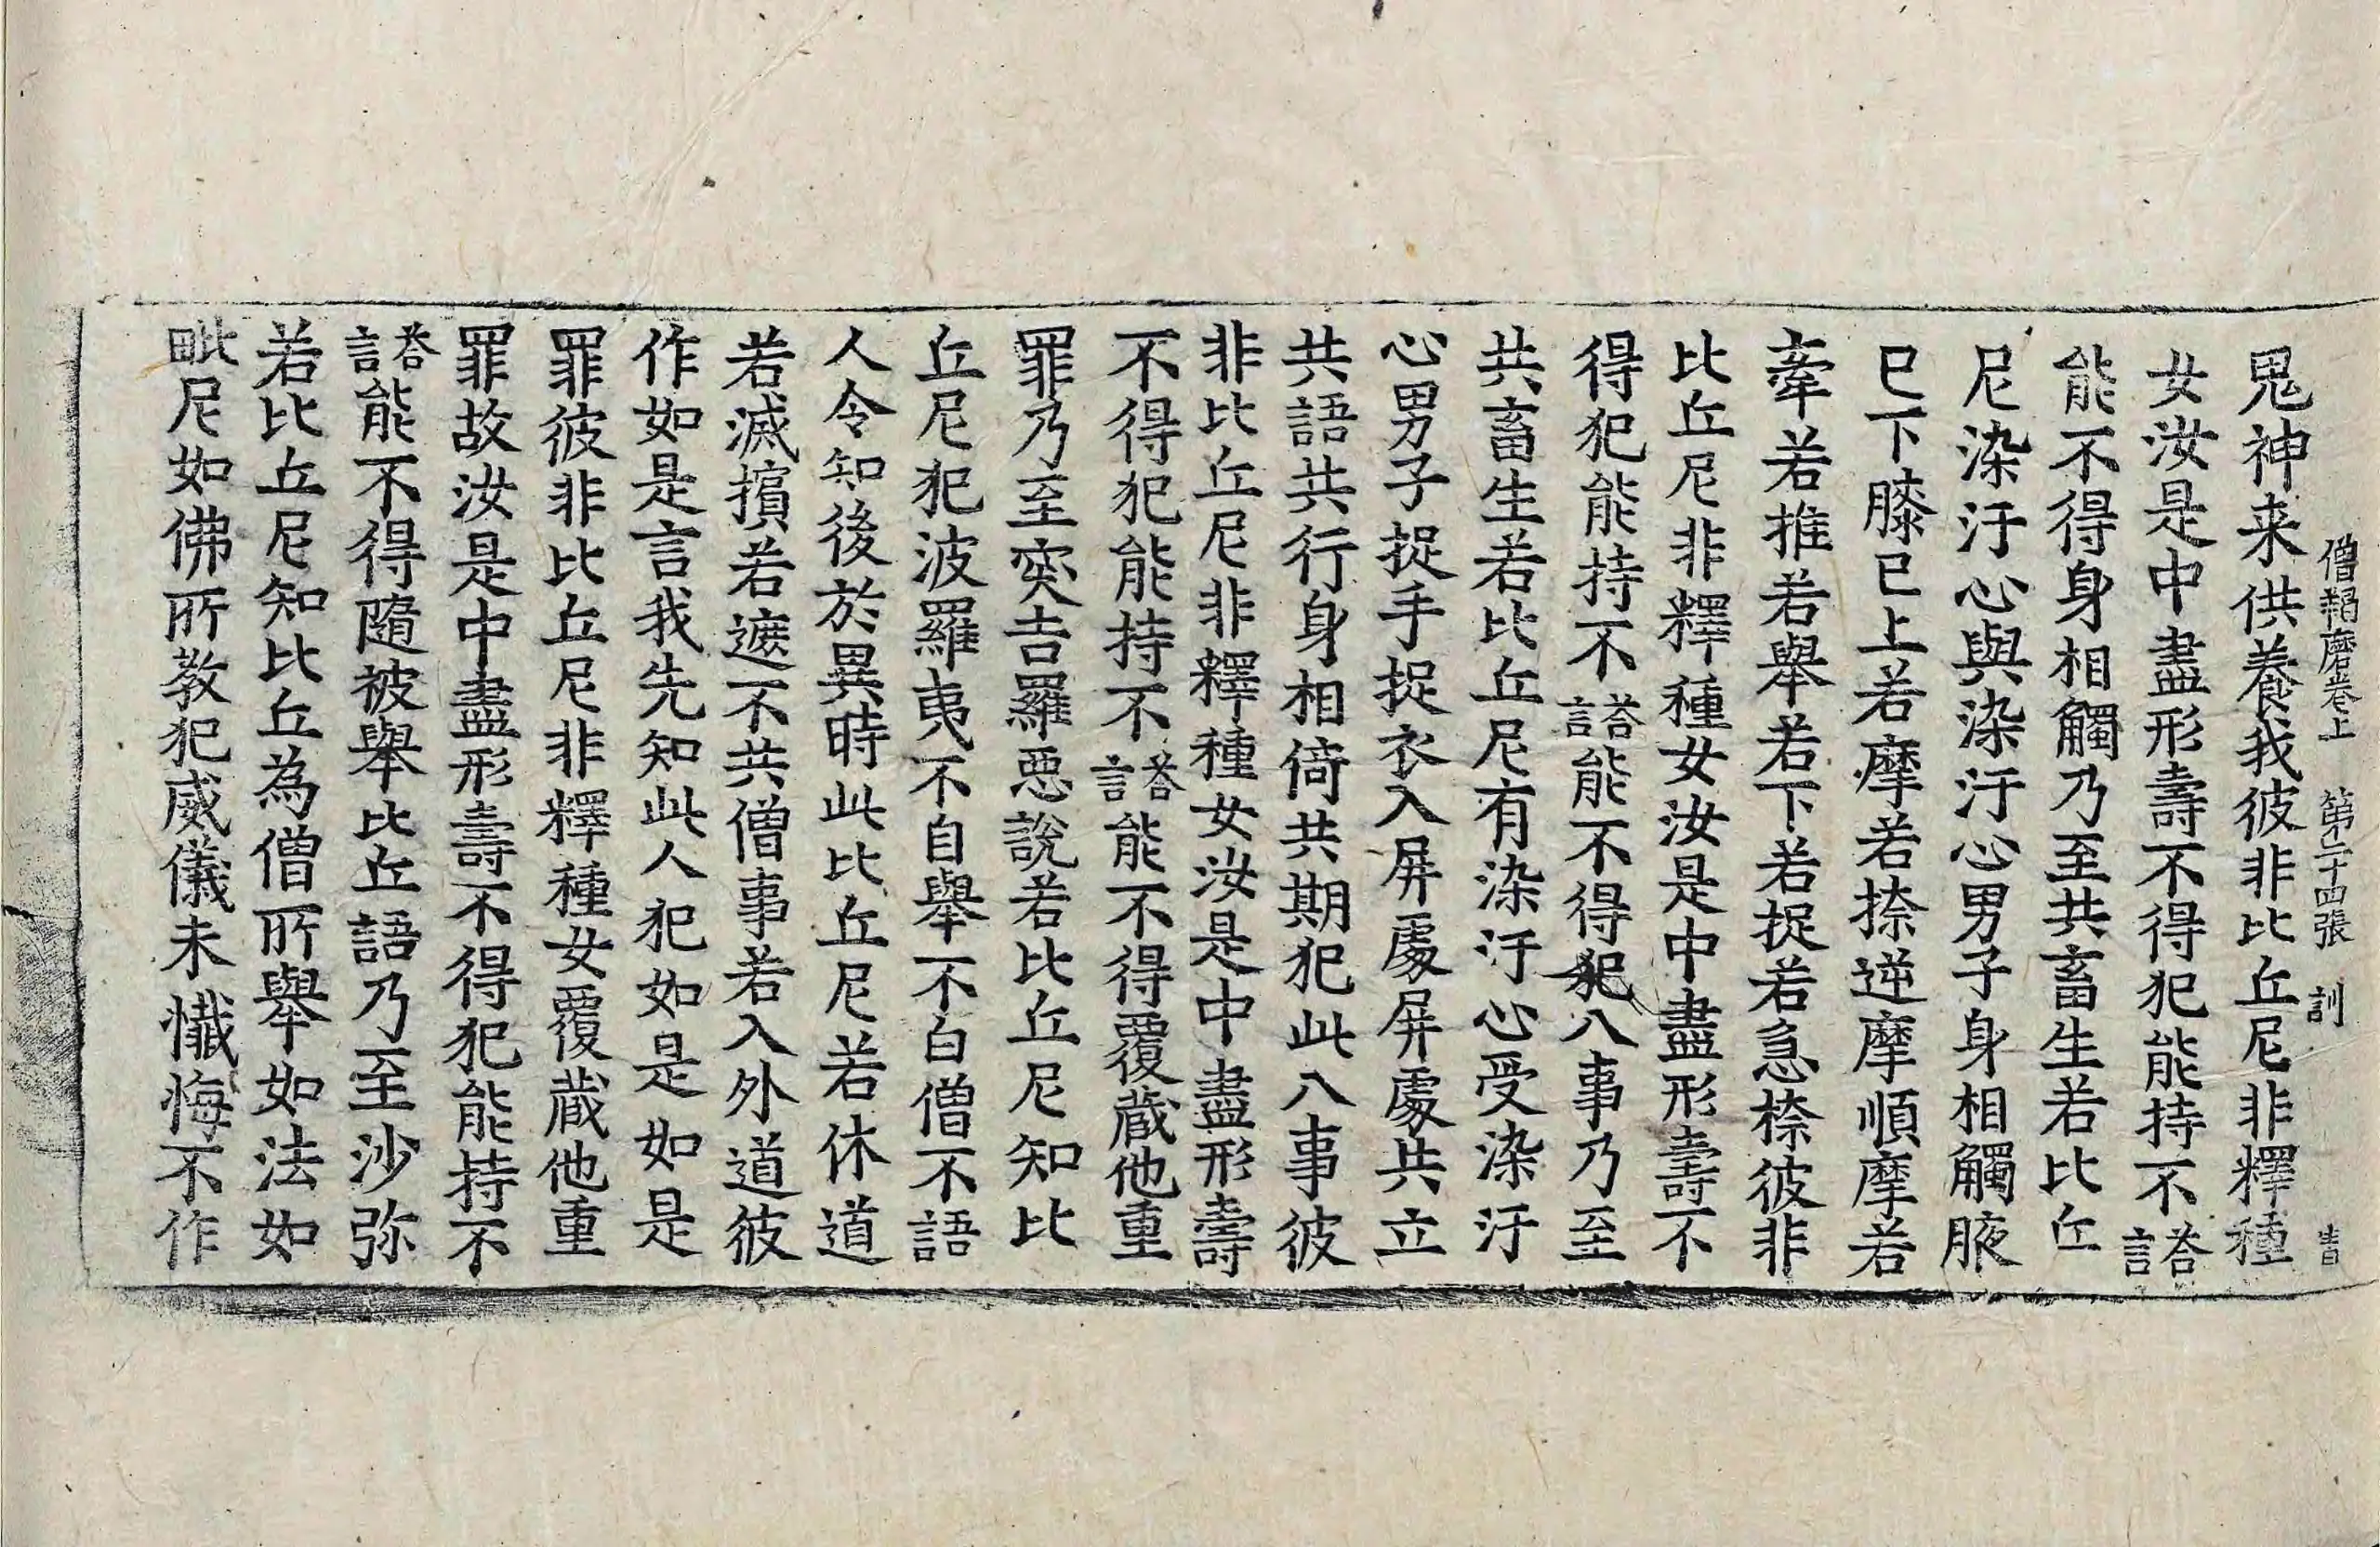 僧羯磨卷上　第二十四張　訓
鬼神来供養我彼非比丘尼非釋種
女汝是中盡形壽不得犯能持不荅言
能不得身相觸乃至共畜生若比丘
尼染汙心與染汙心男子身相觸腋
巳下膝巳上若摩若捺逆摩順摩若
牽若推若舉若下若捉若急捺彼非
比丘尼非釋種女汝是中盡形壽不
得犯能持不荅言能不得犯八事乃至
共畜生若比丘尼有染汙心受染汙
心男子捉手捉衣入屏處屏處共立
共語共行身相倚共期犯此八事彼
非比丘尼非釋種女汝是中盡形壽
不得犯能持不荅言能不得覆蔵他重
罪乃至突吉羅惡說若比丘尼知比
丘尼犯波羅夷不自舉不白僧不語
人令知後於異時此比丘尼若休道
若滅擯若遮不共僧事若入外道彼
作如是言我先知此人犯如是如是
罪彼非比丘尼非釋種女覆蔵他重
罪故汝是中盡形壽不得犯能持不
荅言能不得隨被舉比丘語乃至沙弥
若比丘尼知比丘為僧所舉如法如
毗尼如佛所教犯威儀未懺悔不作